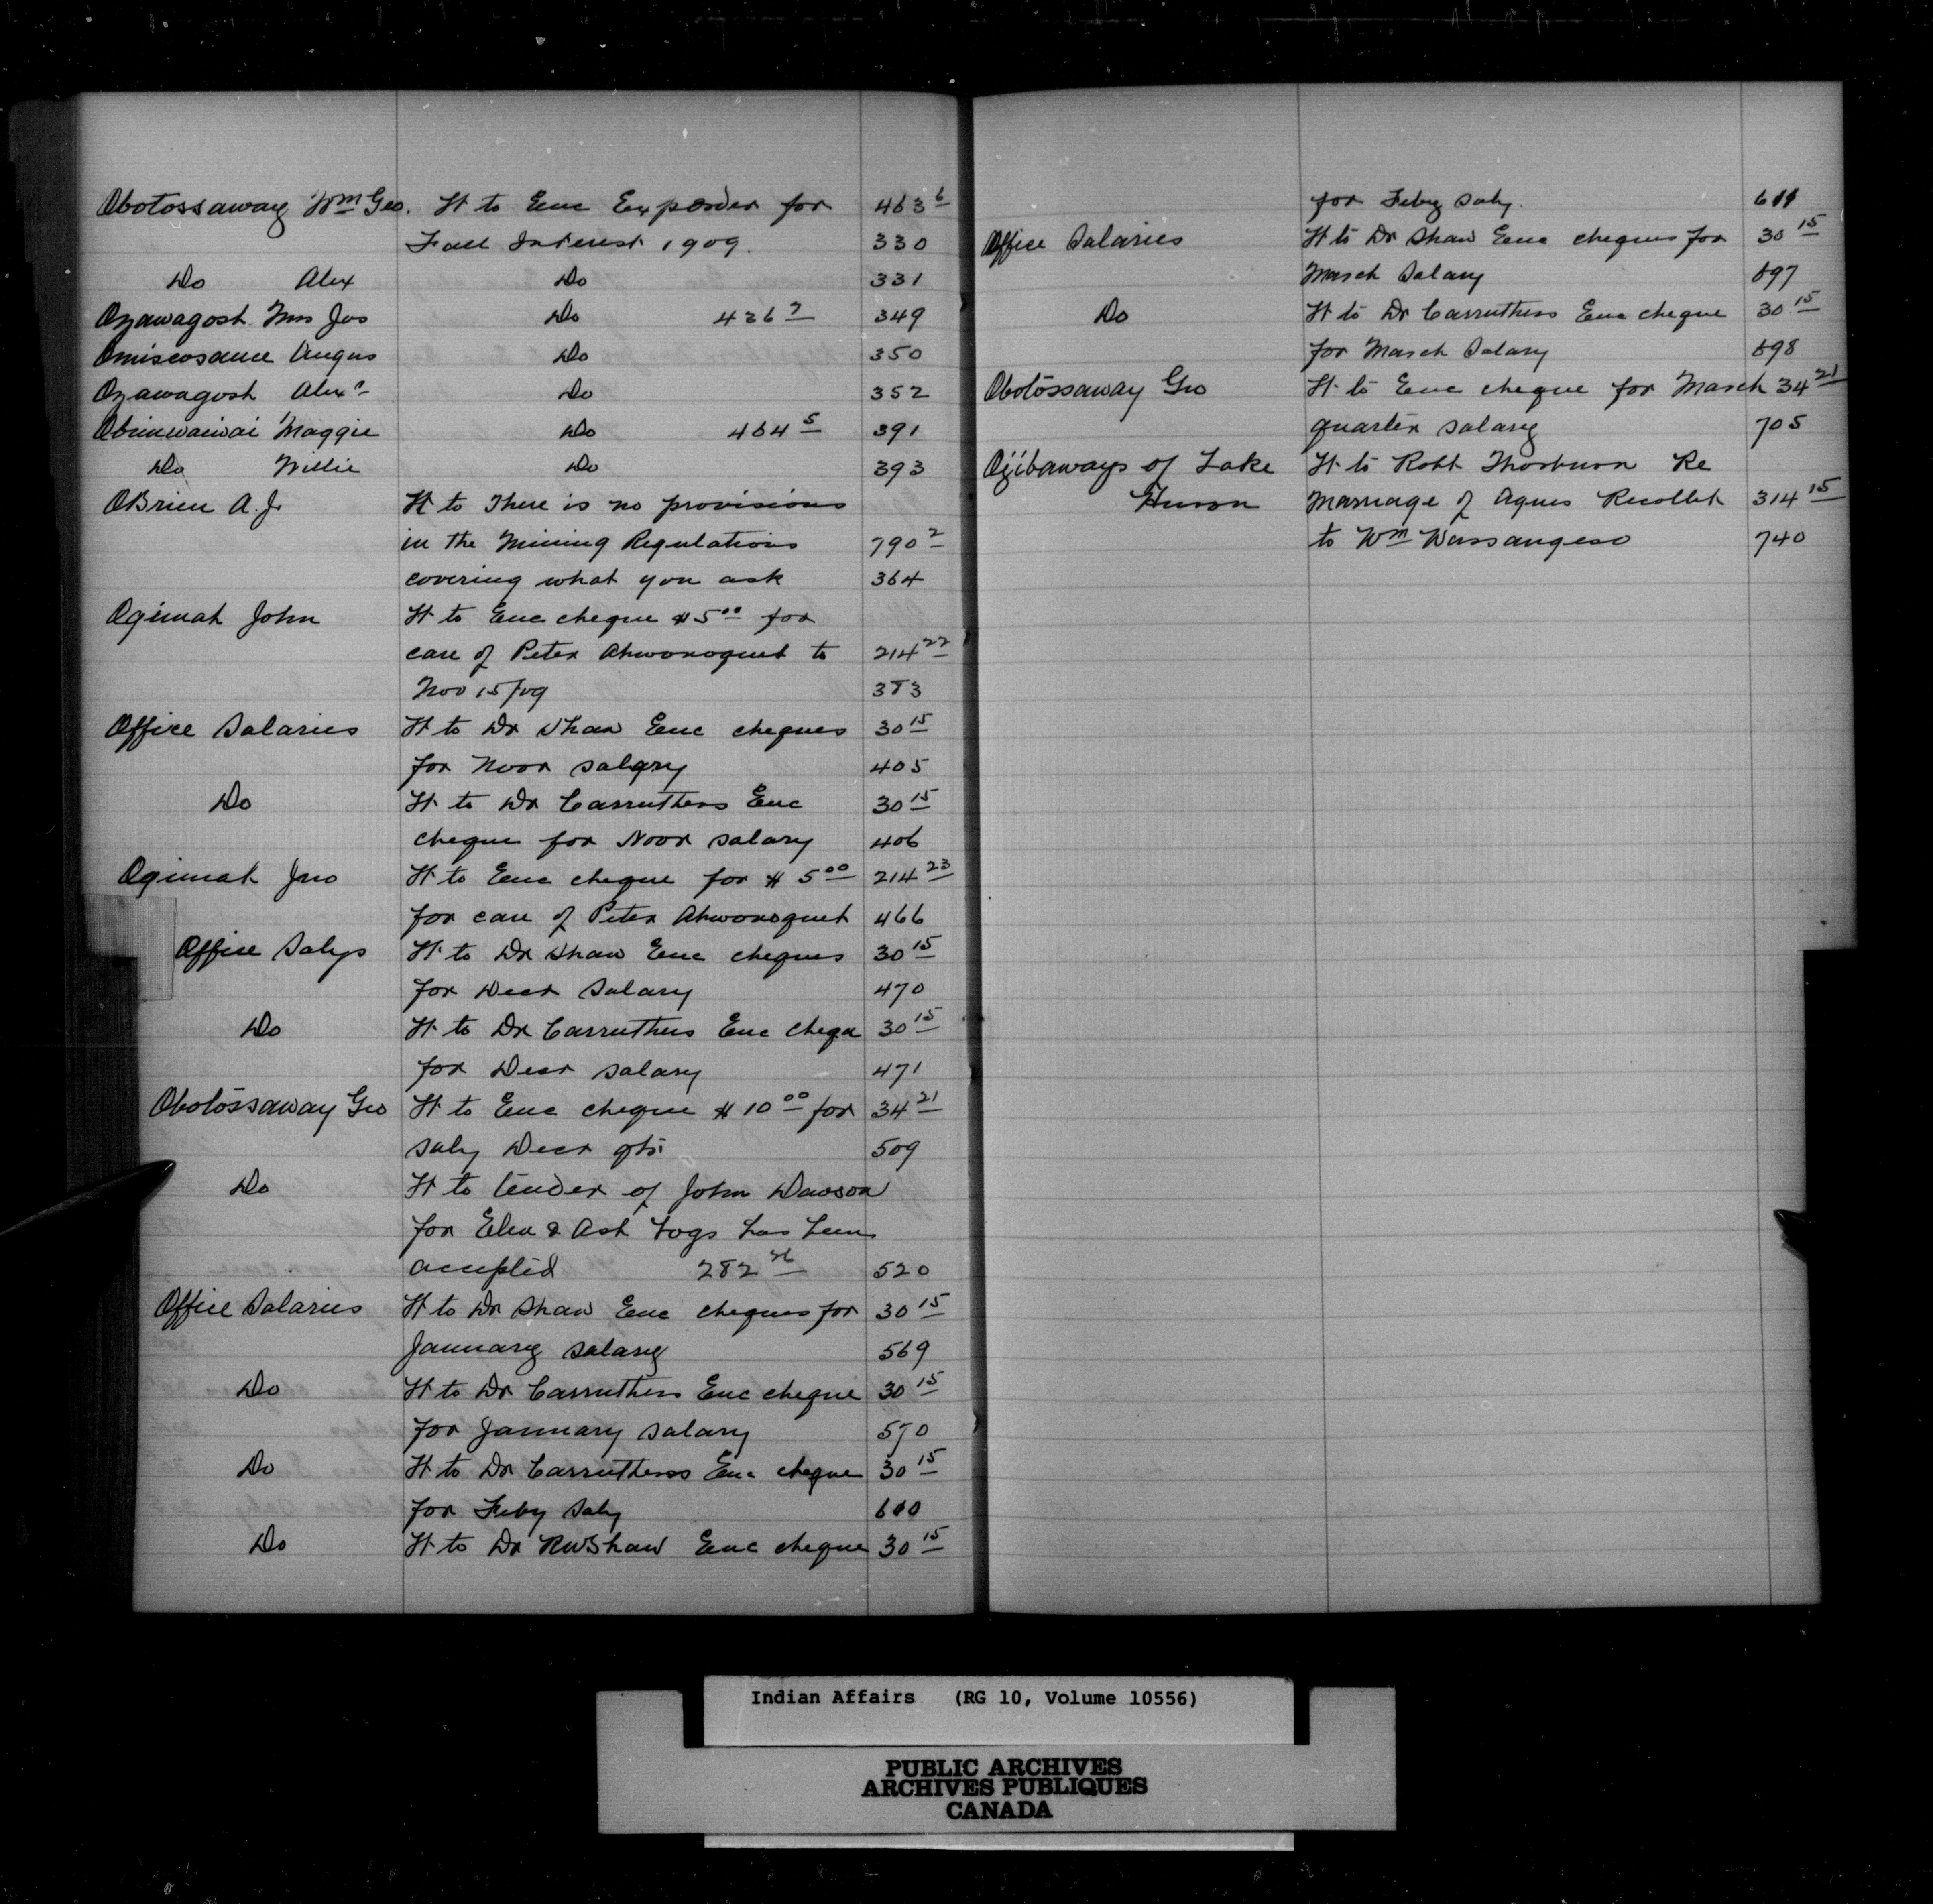 Obotossaway Wm Geo. Ht to Enc Exporder for 463 6
Fall Interest 1909. 330
Do Alex Do 331
Ozawagosh Mrs Jos Do 436 7 349
Omiscosauce Angus Do 350
Ozawagosh Alexr Do 352
Obimwaiwai Maggie Do 464 5 391
Do Willie Do 393
OBrien A.J. Ht to There is no provisions
in the Mining Regulations 790 2
covering what you ask 364
Ogimah John Ht to Enc cheque $5 00 for
care of Peter Ahwonoquet to 214 22
Nov 15/09 383
Office Salaries Ht to Dr Shaw Enc cheques 30 15
for Novr salary 405
Do Ht to Dr Carruthers Enc 30 15
cheque for Novr salary 406
Ogimah Jno Ht to Enc cheque for $ 5 00 214 23
for care of Peter Ahwonoquet 466
Office Salys Ht to Dr Shaw Enc cheques 30 15
for Decr Salary 470
Do Ht to Dr Carruthers Enc cheque 30 15
for Decr salary 471
Obotossaway Geo Ht to Enc cheque $ 10 00 for 34 21
saly Decr qtr 509
Do Ht to tender of John Dawson
for Elm & Ash Logs has been
accepted 282 26 520
Office Salaries Ht to Dr Shaw Enc cheques for 30 15
January salary 569
Do Ht to Dr Carruthers Enc cheque 30 15
for January salary 570
Do Ht to Dr Carruthers Enc cheque 30 15
for Feby Saly 610
Do Ht to Dr RWShaw Enc cheque 30 15
for Feby Saly. 611
Office Salaries Ht to Dr Shaw Enc cheques for 30 15
March Salary 697
Do Ht to Dr Carruthers Enc cheque 30 15
for March Salary 698
Obotossaway Geo Ht to Enc cheque for March 34 21
quarter salary 705
Ojibaways of Lake Ht to Robt Thorburn Re
Huron Marriage of Agnes Recollet 314 15
to Wm Wassangeso 740
Indian Affairs (RG 10, Volume 10556)
PUBLIC ARCHIVES
ARCHIVES PUBLIQUES
CANADA